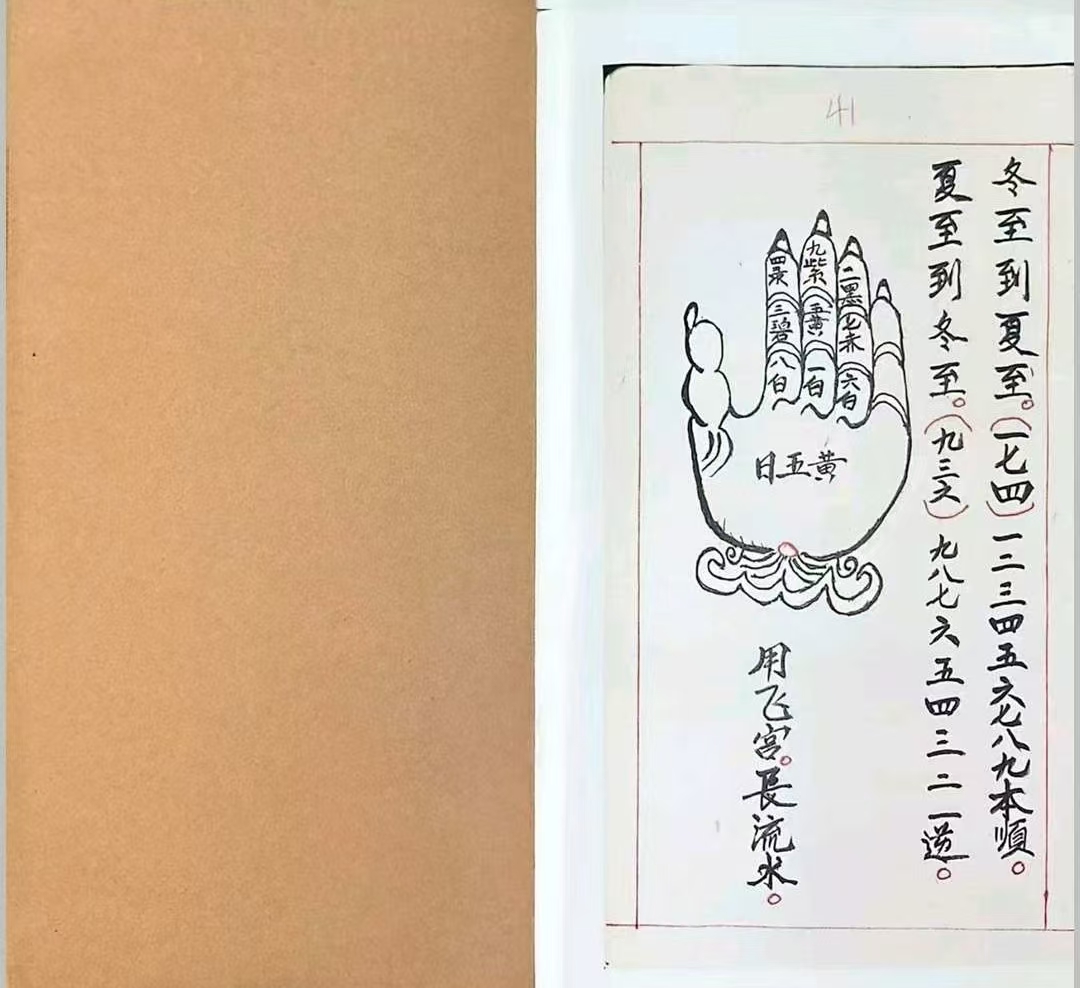 41
冬至到夏至。(一七四)一二三四五六七八九本順。
夏至到冬至。(九三六)九八七六五四三二一逆。
二黑
七赤
六白
九紫
五黄
一白
四录
三碧
八白
日五黄
用飞宫。長流水。